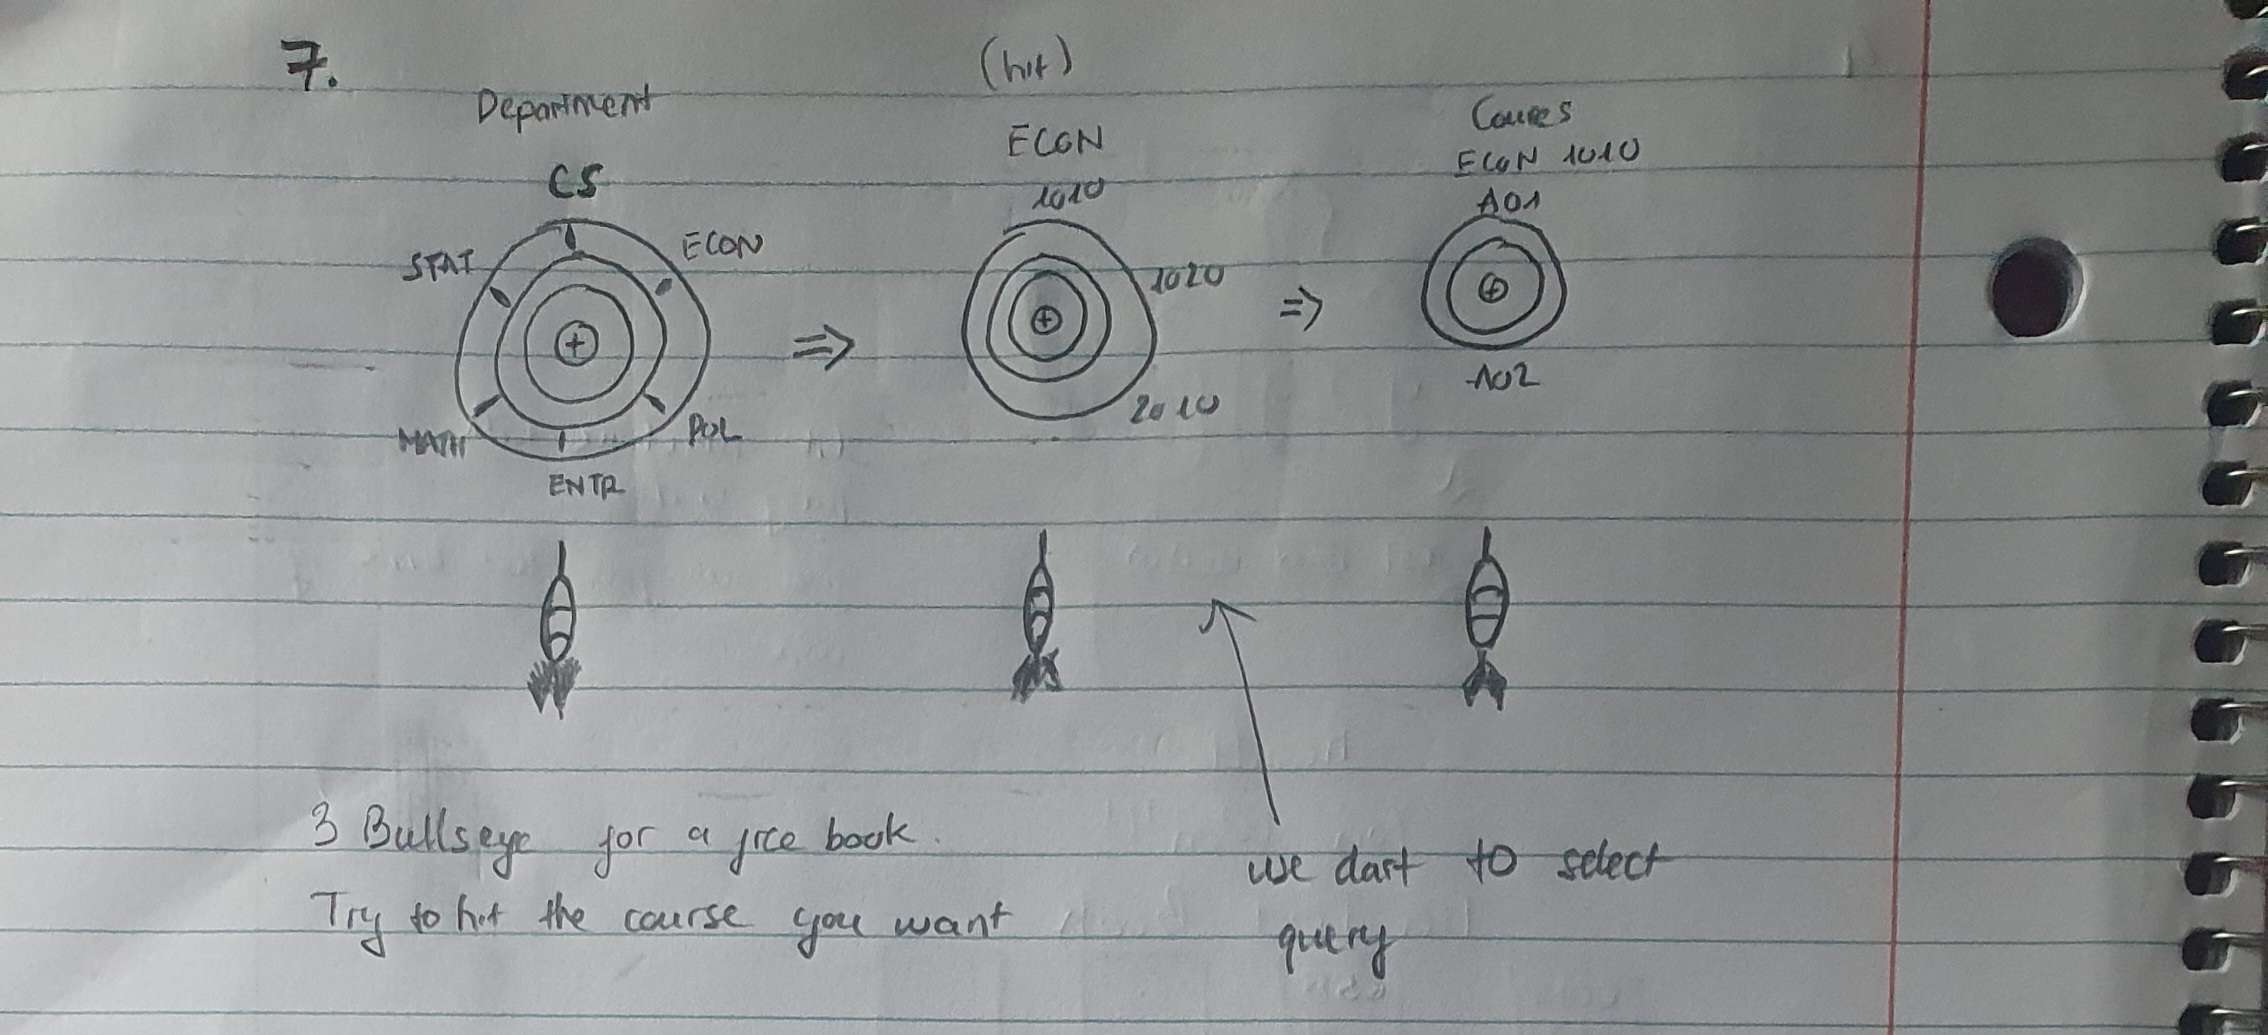 7.
Department
CS
STAT
ECON
MATH
POL
ENTR
(hit)
ECON
1010
1020
2010
Coures
ECON 1010
A01
A02
3 Bullseye for a free book.
Try to hit the course you want
we dart to select
query